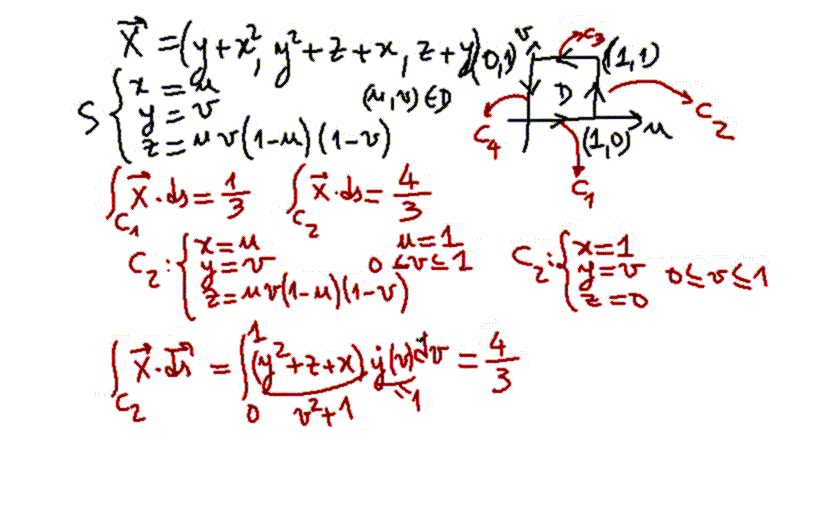 X⃗ = (y + x², y² + z + x, z + y)
S { x = u
y = v
z = u v (1 - u) (1 - v)
(u, v) ∈ D
(0,1) v C₃ (1,1)
D
C₂
C₄ (1,0) u
C₁
∫_C₁ X⃗ · ds = 1/3 ∫_C₂ X⃗ · ds = 4/3
C₂ : { x = u
y = v
z = u v (1 - u) (1 - v)
u = 1
0 ≤ v ≤ 1
C₂ : { x = 1
y = v
z = 0
0 ≤ v ≤ 1
∫_C₂ X⃗ · ds⃗ = ∫₀¹ (y² + z + x) · ẏ(v) dv = 4/3
v² + 1 = 1